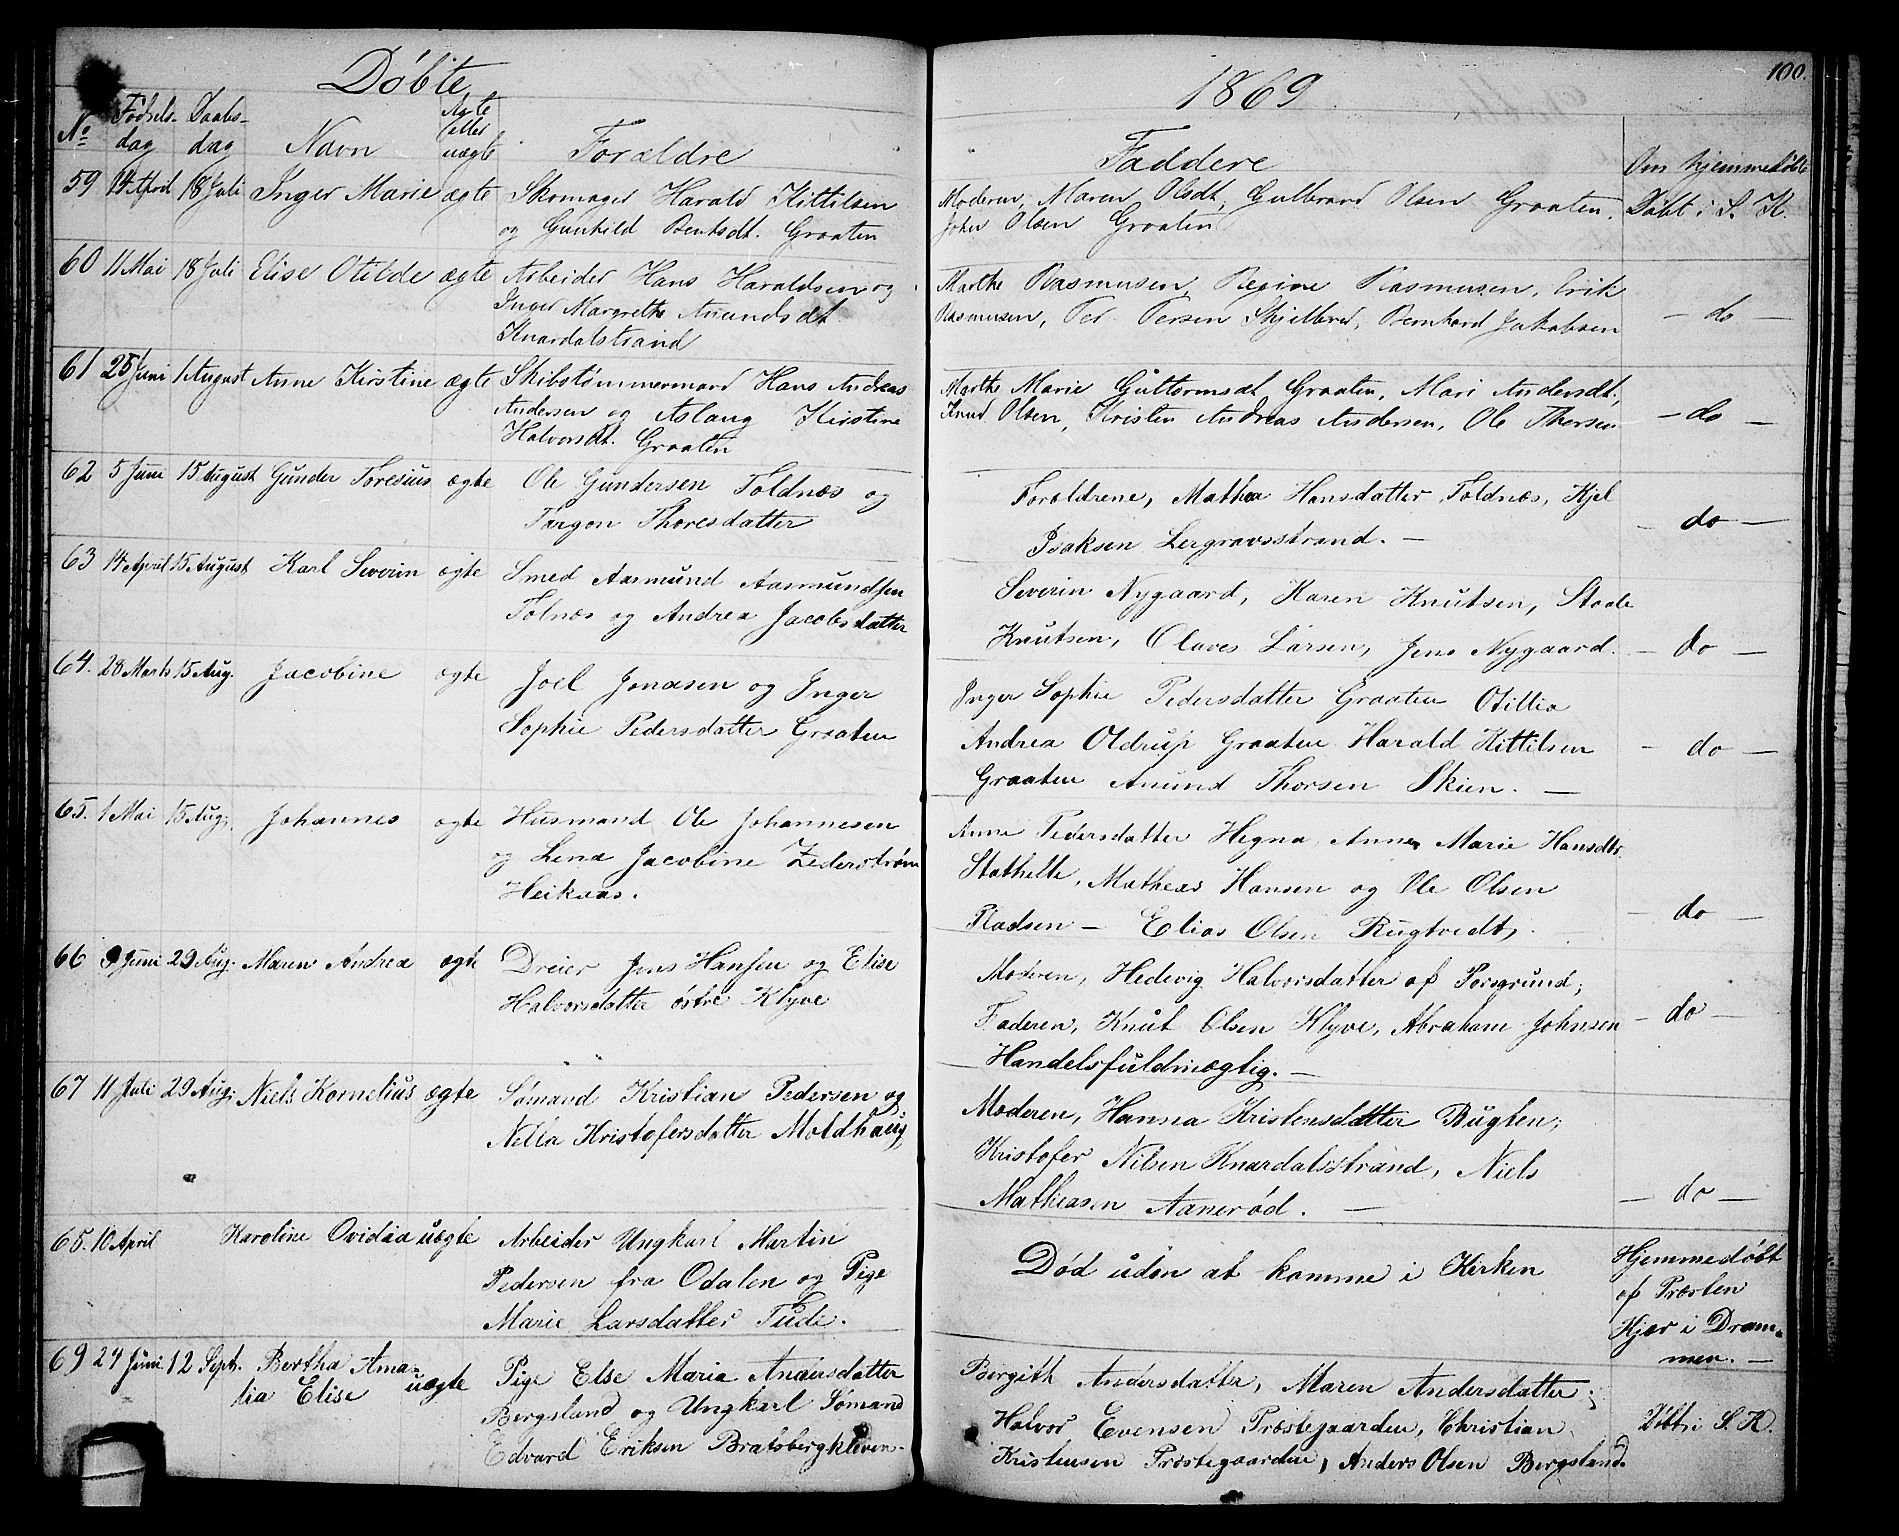 Døbte
1869
100.
No Fødsels-dag Daabs-dag Navn Ægte eller uægte Forældre Faddere Om hjemmedøbt
59 14 April 18 Juli Inger Marie ægte Skomager Harald Kittilsen
og Gunhild Bentsdt. Graaten
Moderen, Maren Olsdt, Gulbrand Olsen Graaten.
John Olsen Graaten
Døbt i S. K.
60 11 Mai 18 Juli Elise Otilde ægte Arbeider Hans Haraldsen og
Inger Margrethe Amundsdt.
Knardalstrand
Marthe Rasmusen, Regine Rasmusen, Erik
Rasmusen, Per Persen Skjelbred, Bernhard Jakobsen
- do -
61 25 Juni 1 August Anne Kirstine ægte Skibstømmermand Hans Andreas
Andersen og Aslaug Kirstine
Halvorsdt. Graaten
Marthe Marie Guttormsdt Graaten, Mari Andersdt.,
Knud Olsen, Kristen Andreas Andersen, Ole Thorsen
- do -
62 5 Juni 15 August Gunder Toresius ægte Ole Gundersen Toldnæs og
Torgon Thoresdatter
Forældrene, Mathea Hansdatter Toldnæs, Kjel
Isaksen Lergravsstrand. -
- do -
63 14 April 15 August Karl Severin ægte Smed Aasmund Aasmundsen
Tolnæs og Andrea Jacobsdatter
Severin Nygaard, Karen Knutsen, Staale
Knutsen, Olaves Larsen, Jens Nygaard.
- do -
64. 28 Marts 15 Aug. Jacobine ægte Joel Jonasen og Inger
Sophie Pedersdatter Graaten
Inger Sophie Pedersdatter Graaten Otillia
Andrea Oldrup Graaten Harald Kittilsen
Graaten Anund Thorsen Skien. -
- do -
65. 1 Mai 15 Aug. Johannes ægte Husmand Ole Johannesen
og Lena Jacobine Zederstrøm
Heikaas.
Anne Pedersdatter Hegna, Anne Marie Hansdtr
Stathelle, Matheas Hansen og Ole Olsen
Pladsen - Elias Olsen Rugtvedt,
- do -
66 9 Juni 29 Aug. Maren Andrea ægte Dreier Jens Hansen og Elise
Halvorsdatter østre Klyve
Moderen, Hedevig Halvorsdatter af Porsgrund;
Faderen, Knut Olsen Klyve, Abraham Johnsen
Handelsfuldmægtig. -
- do -
67 11 Juli 29 Aug. Niels Kornelius ægte Sømand Kristian Pedersen og
Nella Kristofersdatter Moldhaug,
Moderen, Hanna Kristensdatter Bugten;
Kristofer Nilsen Knardalsstrand, Niels
Matheasen Aanerød. -
- do -
65. 10 April Karoline Ovidia uægte Arbeider Ungkarl Martin
Pedersen fra Odalen og Pige
Marie Larsdatter Tude.
Død uden at komme i Kirken
Hjemmedøbt
af Præsten
Hjær i Dram-
men. -
69 24 Juni 12 Sept. Bertha Ama-
lia Elise uægte Pige Else Maria Andersdatter
Bergsland og Ungkarl Sømand
Edvard Eriksen Bratsbergkleven.
Bergith Andersdatter, Maren Andersdatter;
Halvor Evensen Præstegaarden, Christian
Kristensen Præstegaarden, Anders Olsen Bergsland.
Døbt i S. K.